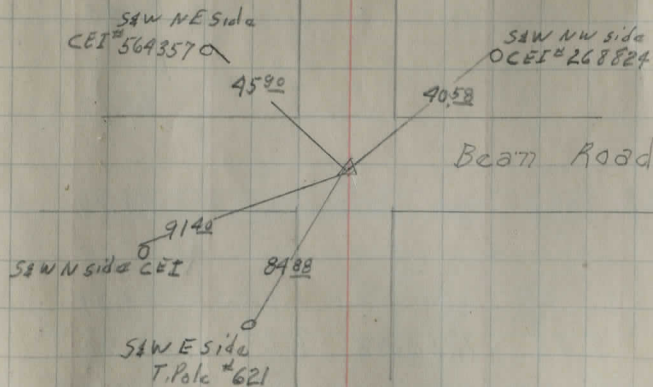 S&W NE Side
CEI #564357
45 90
S&W NW side
CEI #268824
40.58
Beam Road
91 40
S&W N side CEI
84 88
S&W E Side
T. Pole #621